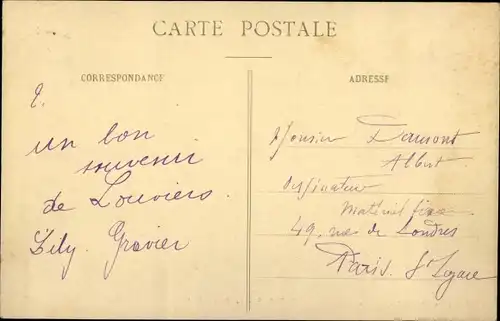 CARTE POSTALE
CORRESPONDANCE
un bon
souvenir
de Louviers.
Lily. Gravier
ADRESSE
Monsieur Daumont
Albert
dessinateur
Matériel fixe
49, rue de Londres
Paris. St Lazare